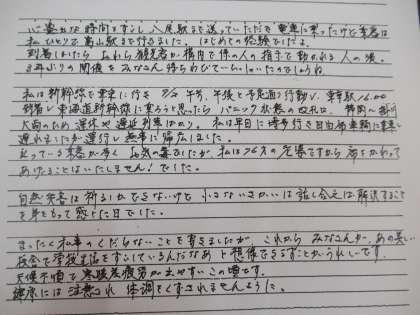 に豊かな時間をすごし八尾駅まで送っていただき電車に乗ったけど乗客は
私ひとりで富山駅まで行きました。はじめての経験でしたよ。
到着したら こちら観光客が構内で係の人の指示で動かれる人の渦。
3年ぶりの開催をみなさん待ちわびていらしゃいたのでしょうね
私は新幹線で東京に行き 9/2 午前、午後と予定通り行動し、東京駅 16:00
到着し東海道新幹線に乗ろうと思ったら パニック状態の改札口。静岡〜掛川
大雨のため運休や遅延列車ばかり。私は早目に 待ち行き自由席車両に乗車し
遅れましたが運行し無事に帰宅しました。
立っている乗客が多く お気の毒でしたが、私は76才の老婆ですから席をかわって
あげることはいたしません！でした。
自然災害は祈るしかできないけど 小さないさかいは話し合えば解決すること
を身をもって感じた日でした。
まったく私事のくだらないことを書きましたが これから みなさんが、あの美しい
校舎で学校生活をすごしているんだなあと想像できることがうれしいです。
天候不順で寒暖差疲労が出やすいこの頃です。
健康には注意され 体調をくずされませんように。